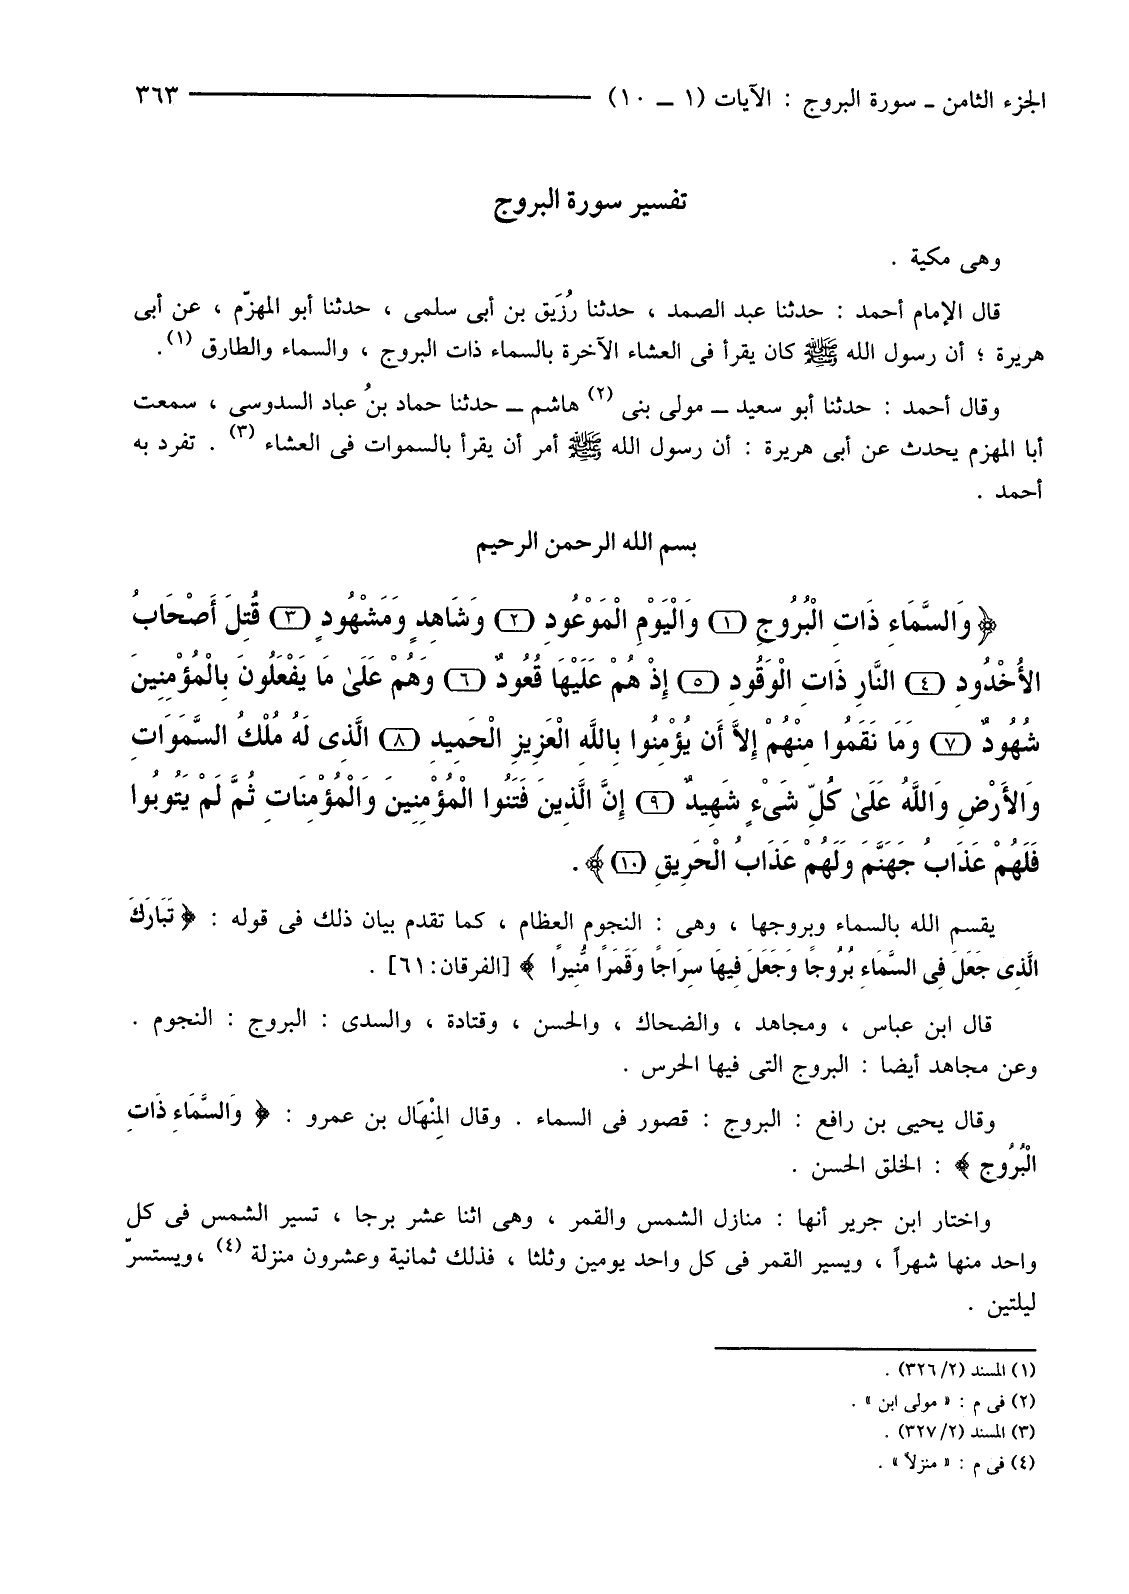 الجزء الثامن ـ سورة البروج : الآيات (١ ــ ١٠) ٣٦٣
تفسير سورة البروج
وهى مكية .
قال الإمام أحمد : حدثنا عبد الصمد ، حدثنا رُزَيق بن أبى سلمى ، حدثنا أبو المهزّم ، عن أبى
هريرة ؛ أن رسول الله ﷺ كان يقرأ فى العشاء الآخرة بالسماء ذات البروج ، والسماء والطارق (١).
وقال أحمد : حدثنا أبو سعيد ــ مولى بنى (٢) هاشم ــ حدثنا حماد بنُ عباد السدوسى ، سمعت
أبا المهزم يحدث عن أبى هريرة : أن رسول الله ﷺ أمر أن يقرأ بالسموات فى العشاء (٣) . تفرد به
أحمد .
بسم الله الرحمن الرحيم
﴿ وَالسَّمَاءِ ذَاتِ الْبُرُوجِ (١) وَالْيَوْمِ الْمَوْعُودِ (٢) وَشَاهِدٍ وَمَشْهُودٍ (٣) قُتِلَ أَصْحَابُ
الأُخْدُودِ (٤) النَّارِ ذَاتِ الْوَقُودِ (٥) إِذْ هُمْ عَلَيْهَا قُعُودٌ (٦) وَهُمْ عَلَىٰ مَا يَفْعَلُونَ بِالْمُؤْمِنِينَ
شُهُودٌ (٧) وَمَا نَقَمُوا مِنْهُمْ إِلاَّ أَن يُؤْمِنُوا بِاللَّهِ الْعَزِيزِ الْحَمِيدِ (٨) الَّذِى لَهُ مُلْكُ السَّمَوَاتِ
وَالأَرْضِ وَاللَّهُ عَلَىٰ كُلِّ شَىْءٍ شَهِيدٌ (٩) إِنَّ الَّذِينَ فَتَنُوا الْمُؤْمِنِينَ وَالْمُؤْمِنَاتِ ثُمَّ لَمْ يَتُوبُوا
فَلَهُمْ عَذَابُ جَهَنَّمَ وَلَهُمْ عَذَابُ الْحَرِيقِ (١٠) ﴾ .
يقسم الله بالسماء وبروجها ، وهى : النجوم العظام ، كما تقدم بيان ذلك فى قوله : ﴿ تَبَارَكَ
الَّذِى جَعَلَ فِى السَّمَاءِ بُرُوجًا وَجَعَلَ فِيهَا سِرَاجًا وَقَمَرًا مُّنِيرًا ﴾ [الفرقان: ٦١] .
قال ابن عباس ، ومجاهد ، والضحاك ، والحسن ، وقتادة ، والسدى : البروج : النجوم .
وعن مجاهد أيضا : البروج التى فيها الحرس .
وقال يحيى بن رافع : البروج : قصور فى السماء . وقال المِنْهَال بن عمرو : ﴿ وَالسَّمَاءِ ذَاتِ
الْبُرُوجِ ﴾ : الخلق الحسن .
واختار ابن جرير أنها : منازل الشمس والقمر ، وهى اثنا عشر برجا ، تسير الشمس فى كل
واحد منها شهراً ، ويسير القمر فى كل واحد يومين وثلثا ، فذلك ثمانية وعشرون منزلة (٤) ،ويستسرّ
ليلتين .
(١) المسند (٢/ ٣٢٦) .
(٢) فى م : « مولى ابن » .
(٣) المسند (٢/ ٣٢٧) .
(٤) فى م : « منزلاً » .